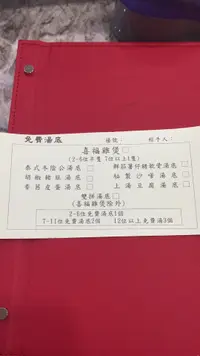 免費湯底 檯號: 經手人:
喜福雞煲□
(2-6位半隻 7位以上1隻)
泰式冬陰公湯底□ 鮮茄薯仔豬軟骨湯底□
胡椒豬肚湯底□ 秘製沙嗲湯底□
芫茜皮蛋湯底□ 上湯豆腐湯底□
雙拼湯底□
(喜福雞煲除外)
2-6位免費湯底1個
7-11位免費湯底2個 12位以上免費湯3個